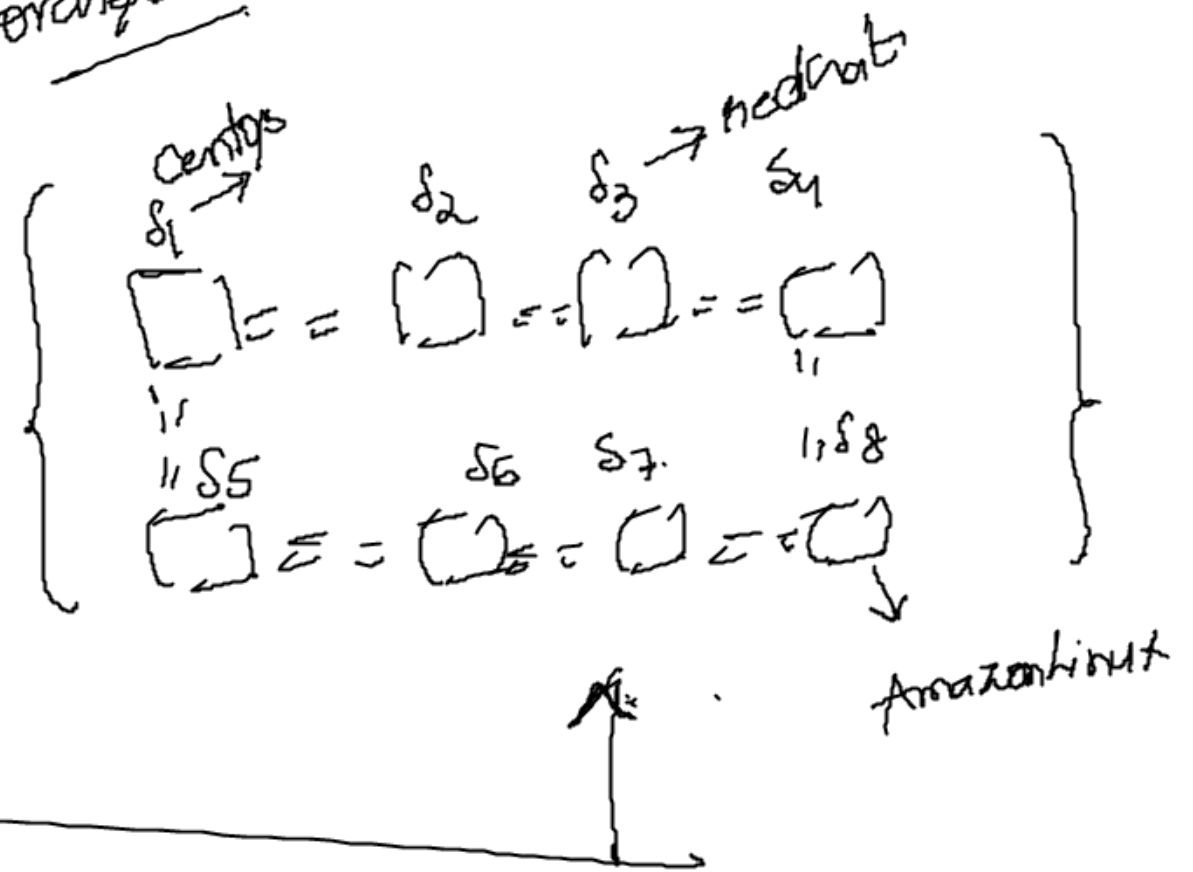 Centos
redhat
S1
S2
S3
S4
S5
S6
S7.
S8
AmazonLinux